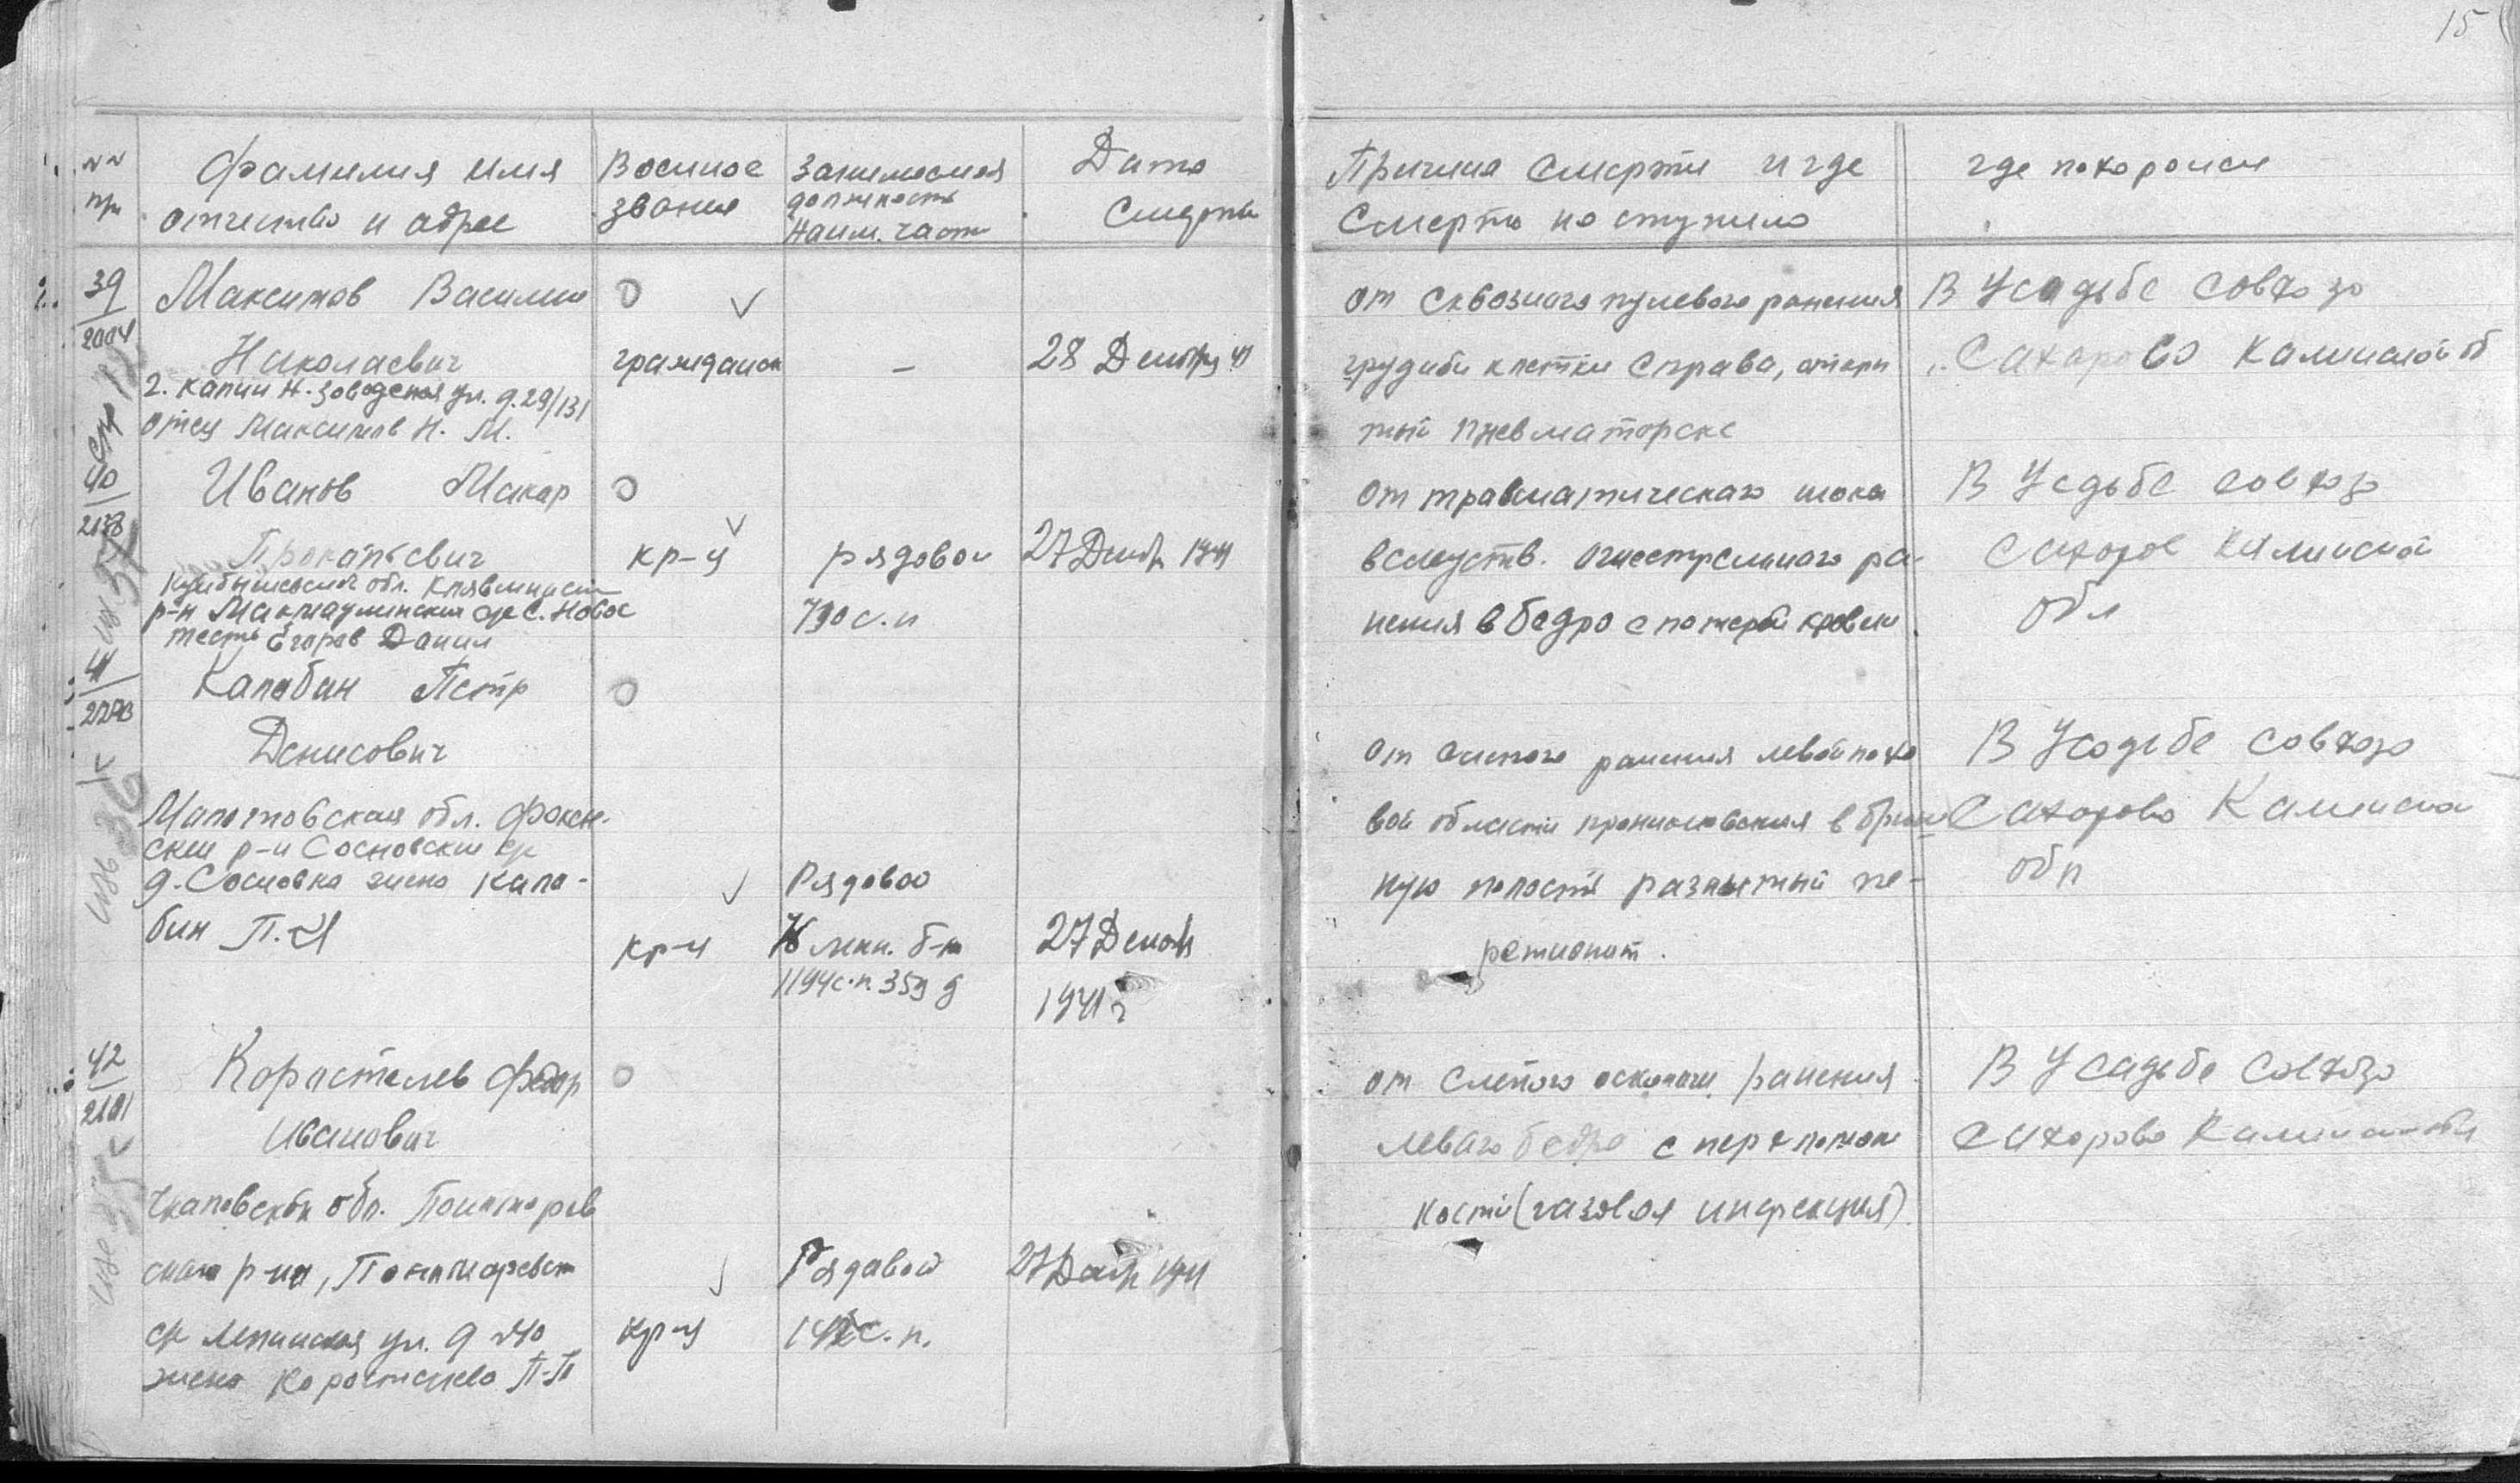 15
№№ пп
Фамилия имя отчество и адрес
Военное звание
Занимаемая должность Наим. части
Дата смерти
Причина смерти и где
Смерть наступила
где похоронен
39
2004
Максимов Василий
Николаевич
г. Калин Н. Заводская ул. д. 29/131
отец Максимов Н. М.
граждански
–
28 Декабр 41
от сквозного пулевого ранения
грудной клетки справа, откры
тый пневматоракс
В Усадьбе совхоза
Сахарово Калинской об
40
Иванов Макар
Прокапьевич
Куйбышевской обл. Клявлинский
р-н
тесть Егоров Данил
кр-ц
рядовой
с.п
27 Декабр 1941
от травматического шока
вследств. огнестрельного ра-
нения в бедро с потерей крови
В Усдьбе совхоза
Сахоров Калинской
обл
41
Калабин Петр
Денисович
Молотовская обл. Фокин-
ский р-н Сосновский с/с
д. Сосновка жена Кала-
бин П. Я
кр-ц
Рядовой
мин. б-н
1194 с.п. 359 д
27 Декаб
1941 г
от слепого ранения левой пахо
вой области проникновения в брюш
ную полость разлитый пе-
ретионит.
В Усодьбе совхоза
Сахорово Калинска
обл
42
2101
Корастелев Федор
Иванович
Чкаловской обл. Понамарев
ского р-на, Понамаревск
с/с Ленинская ул. д №10
жена Коростелева П-П
кр-ц
Рядавой
с.п.
27 Декбр 1941
от слепого осколочн ранения
левого бедра с переломом
кости (газовая инфекция)
В Усадьбе Совхоза
Сахорово Калининской